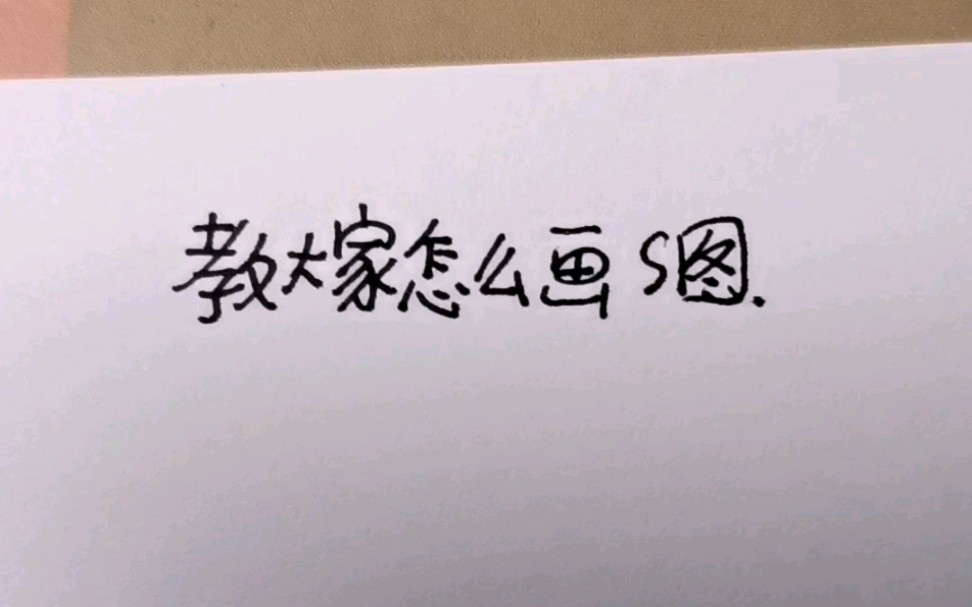 教大家怎么画S图.